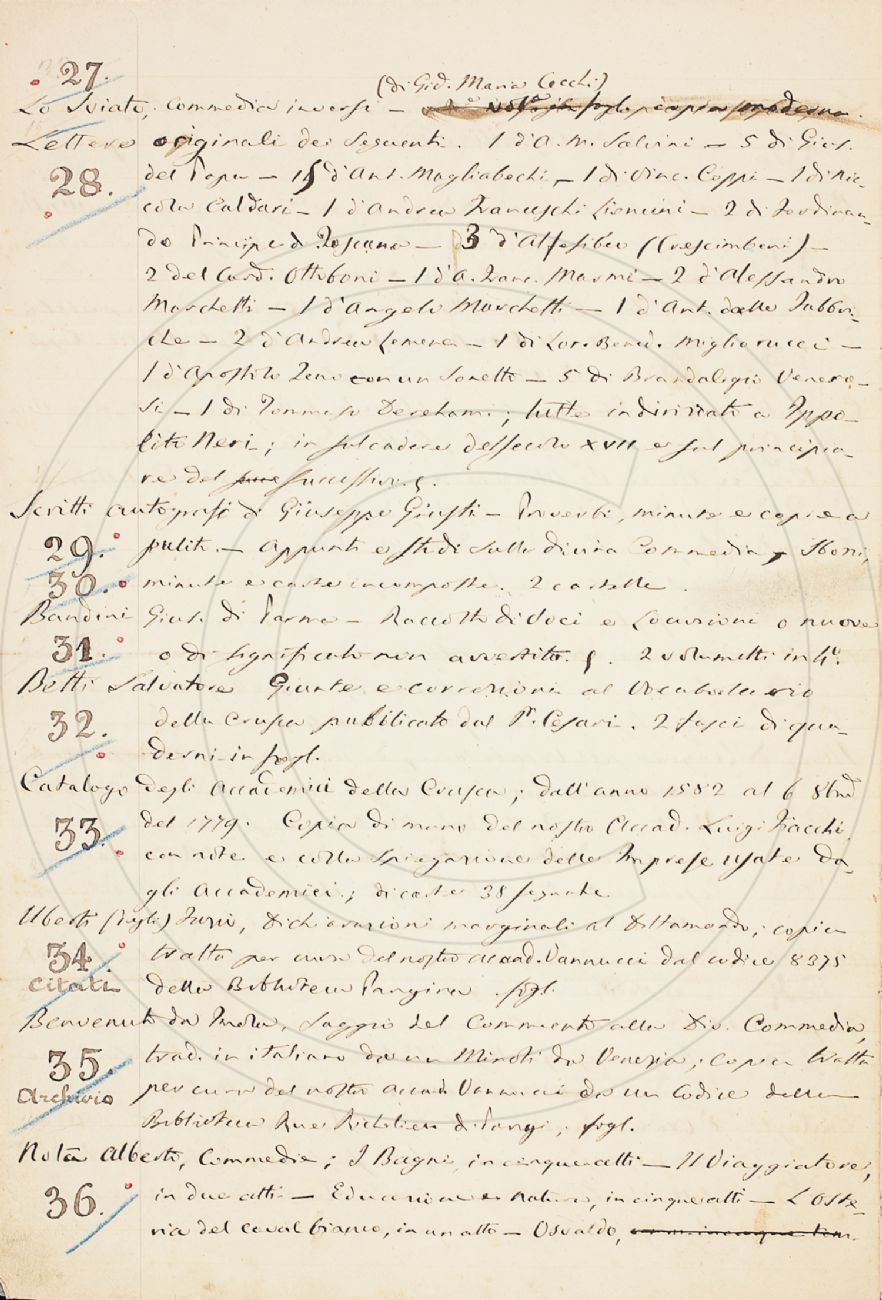 27.
(di Gio. Maria Cecchi)
Lo Sviato, commedia in versi —
Lettere originali dei seguenti. 1 d'A. M. Salvini — 5 di Gius.
28.
del Papa — 15 d'Ant. Magliabechi — 1 di Vinc. Coppi — 1 di Nic-
cola Caldari — 1 d'Andrea Franceschi Lioncini — 2 di Ferdinan-
do Principe di Toscana — 3 d'Alfesibeo (Crescimbeni) —
2 del Card. Ottoboni — 1 d'A. Franc. Marmi — 2 d'Alessandro
Marchetti — 1 d'Angelo Marchetti — 1 d'Ant. dalle Fabbri-
che — 2 d'Andrea — 1 di Lor. Bened. Migliorucci —
1 d'Apostolo Zeno con un Sonetto — 5 di Brandaligio Venero-
si — 1 di Tommaso Dereham; tutte indirizzate a Ippo-
lito Neri; in sul cadere del secolo XVII e sul principia-
re del successivo.
Scritti autografi di Giuseppe Giusti — Proverbi, minute e copie a
29.
pulito. — Appunti e studi sulla divina Commedia,
30.
minute e carte incomposte. 2 cartelle.
Bandini Gius. di Parma — Raccolta di Voci e Locuzioni o nuove
31.
o di significato non avvertito. 2 volumetti in 4º.
Betti Salvatore Giunte e correzioni al Vocabolario
32.
della Crusca pubblicato dal P. Cesari. 2 fasci di qua-
derni in fogl.
Catalogo degli Accademici della Crusca; dall'anno 1582 al 6
33.
del 1779. Copia di mano del nostro Accad. Luigi Fiacchi
con note e colla spiegazione delle Imprese usate da-
gli Accademici; di carte 38 segnate
Uberti (degli) Fazio, Dichiarazioni marginali al Dittamondo; copia
34.
tratta per cura del nostro Accad. Vannucci dal codice 8375
Citati
della Biblioteca Parigina fogl.
Benvenuto da Imola, Saggio del Commento alla Div. Commedia,
35.
trad. in italiano da un Minoti da Venezia; copia tratta
Archivio
per cura del nostro Accad. Vannucci da un Codice della
Biblioteca Rue Richelieu di Parigi; fogl.
Nota Alberto, Commedie; I Bagni, in cinque atti — Il Viaggiatore,
36.
in due atti — Educazione e Natura, in cinque atti — L'Oste-
ria del caval bianco, in un atto — Osvaldo,